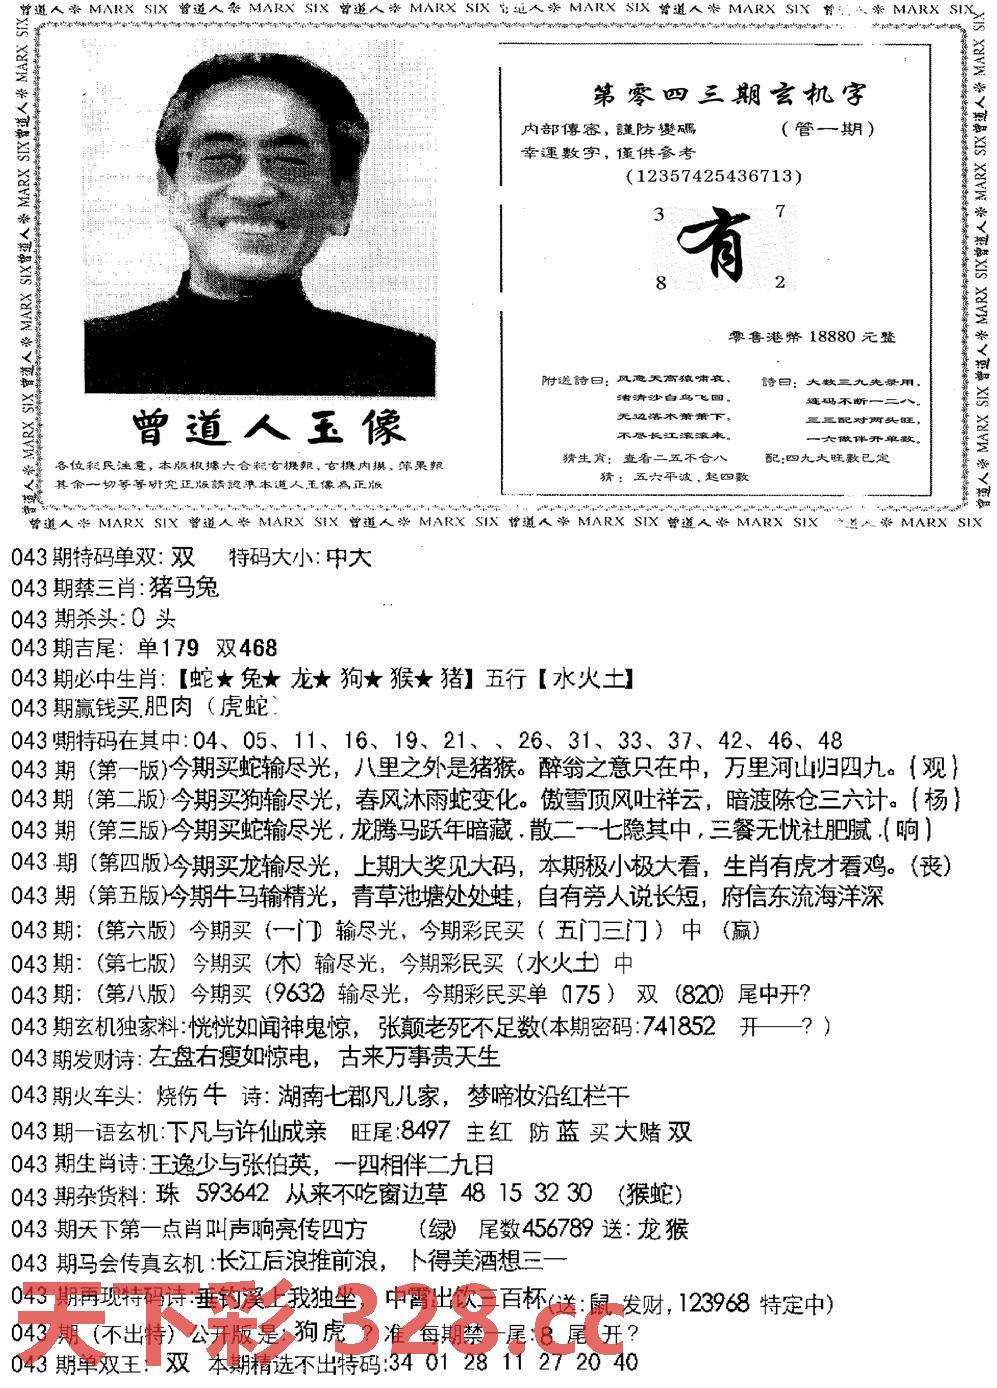 曾道人※ MARX SIX 曾道人※ MARX SIX 曾道人※ MARX SIX 曾道人※ MARX SIX 曾道人※ MARX SIX 曾道人※ MARX SIX
第零四三期玄机字
内部傳密，謹防變碼 （管一期）
幸運數字，僅供參考
(12357425436713)
3 7
有
8 2
零售港幣 18880 元整
附送詩曰：风急天高猿啸哀，
渚清沙白鸟飞回。
无边落木萧萧下，
不尽长江滚滚来。
詩曰：大数三九先录用，
连码不断一二八。
三三配对两头旺，
一六做伴开单数。
猜生肖：查看二五不合八 配:四九大旺數已定
猜：五六平波，起四數
曾道人玉像
各位彩民注意，本版根據六合彩玄機報，玄機内摸，苹果報
其余一切等等研究正版請認準本道人玉像為正版
曾道人※ MARX SIX 曾道人※ MARX SIX 曾道人※ MARX SIX 曾道人※ MARX SIX 曾道人※ MARX SIX 曾道人※ MARX SIX
043 期特码单双: 双 特码大小: 中大
043 期禁三肖: 猪马兔
043 期杀头: 0 头
043 期吉尾: 单179 双468
043 期必中生肖:【蛇★兔★龙★狗★猴★猪】五行【水火土】
043 期赢钱买.肥肉（虎蛇）
043 期特码在其中: 04、05、11、16、19、21、、26、31、33、37、42、46、48
043 期（第一版）今期买蛇输尽光，八里之外是猪猴。醉翁之意只在中，万里河山归四九。{观}
043 期（第二版）今期买狗输尽光，春风沐雨蛇变化。傲雪顶风吐祥云，暗渡陈仓三六计。{杨}
043 期（第三版）今期买蛇输尽光,龙腾马跃年暗藏.散二一七隐其中,三餐无忧社肥腻.{响}
043 期（第四版）今期买龙输尽光，上期大奖见大码，本期极小极大看，生肖有虎才看鸡。(丧)
043 期（第五版）今期牛马输精光，青草池塘处处蛙，自有旁人说长短，府信东流海洋深
043 期:（第六版）今期买（一门）输尽光，今期彩民买（五门三门）中（赢）
043 期:（第七版）今期买（木）输尽光，今期彩民买（水火土）中
043 期:（第八版）今期买（9632）输尽光，今期彩民买单（175）双（820）尾中开?
043 期玄机独家料: 恍恍如闻神鬼惊，张颠老死不足数(本期密码: 741852 开——? )
043 期发财诗: 左盘右瘦如惊电，古来万事贵天生
043 期火车头: 烧伤牛 诗: 湖南七郡凡儿家，梦啼妆沿红栏干
043 期一语玄机: 下凡与许仙成亲 旺尾: 8497 主红 防蓝 买大赌双
043 期生肖诗: 王逸少与张伯英，一四相伴二九日
043 期杂货料: 珠 593642 从来不吃窗边草 48 15 32 30 （猴蛇）
043 期天下第一点肖叫声响亮传四方 （绿） 尾数456789 送: 龙猴
043 期马会传真玄机: 长江后浪推前浪，卜得美酒想三一
043 期再现特码诗: 垂钓溪上我独坐，中霄出饮三百杯(送: 鼠 发财, 123968 特定中)
043 期（不出特）公开版是: 狗虎 ? 准 每期禁一尾: 8 尾 开?
043 期单双王: 双 本期精选不出特码: 34 01 28 11 27 20 40
天下彩 328.cc